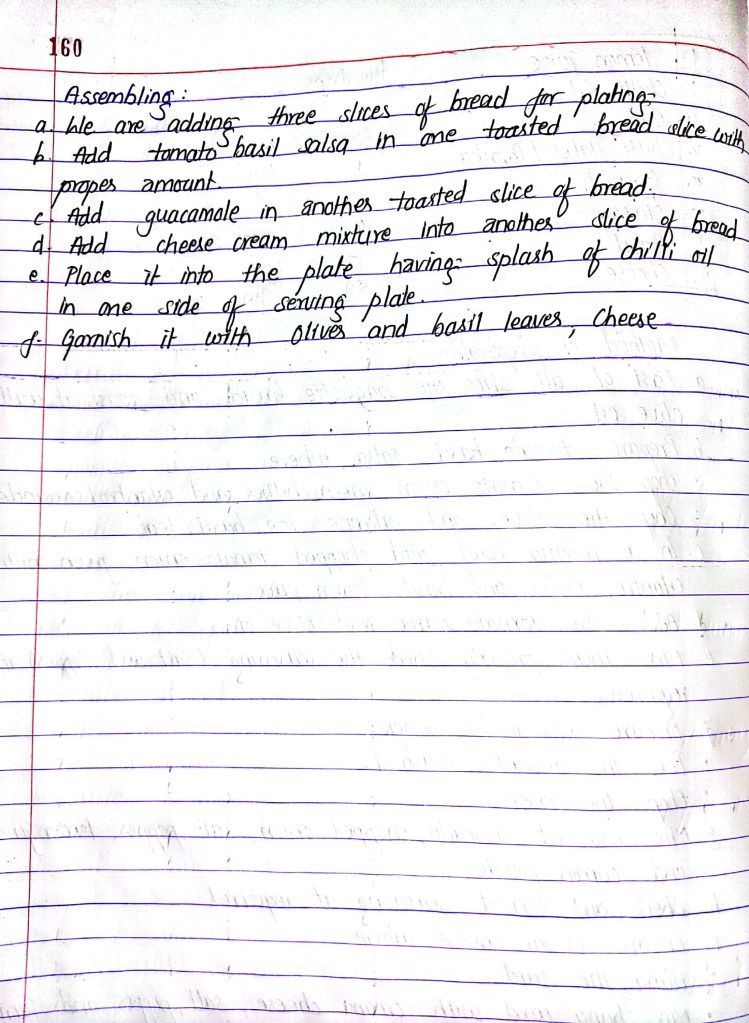 160
Assembling:
a. We are adding three slices of bread for plating
b. Add tomato basil salsa in one toasted bread slice with
proper amount.
c. Add guacamole in another toasted slice of bread.
d. Add cheese cream mixture into another slice of bread
e. Place it into the plate having splash of chilli oil
in one side of serving plate.
f. Garnish it with olives and basil leaves, cheese